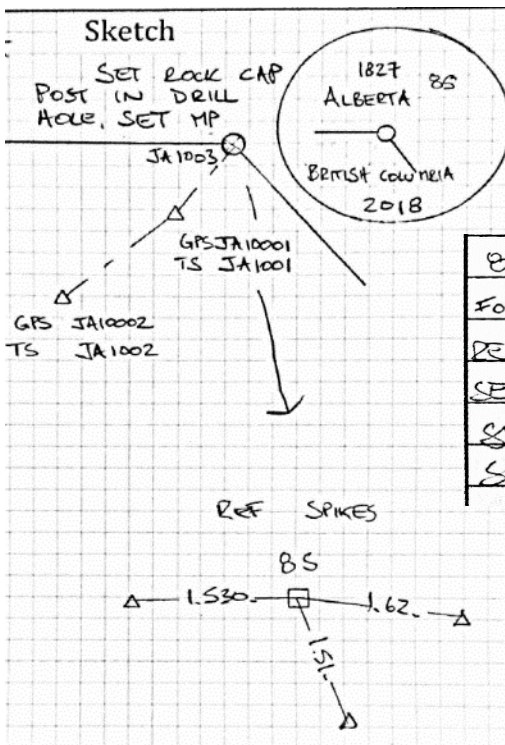 Sketch
SET ROCK CAP
POST IN DRILL
HOLE, SET MP
JA1003
1827 8S
ALBERTA
BRITISH COLUMBIA
2018
GPSJA10001
TS JA1001
GPS JA10002
TS JA1002
8
FO
RE
SE
SS
S
REF SPIKES
8S
1.530
1.62
1.51